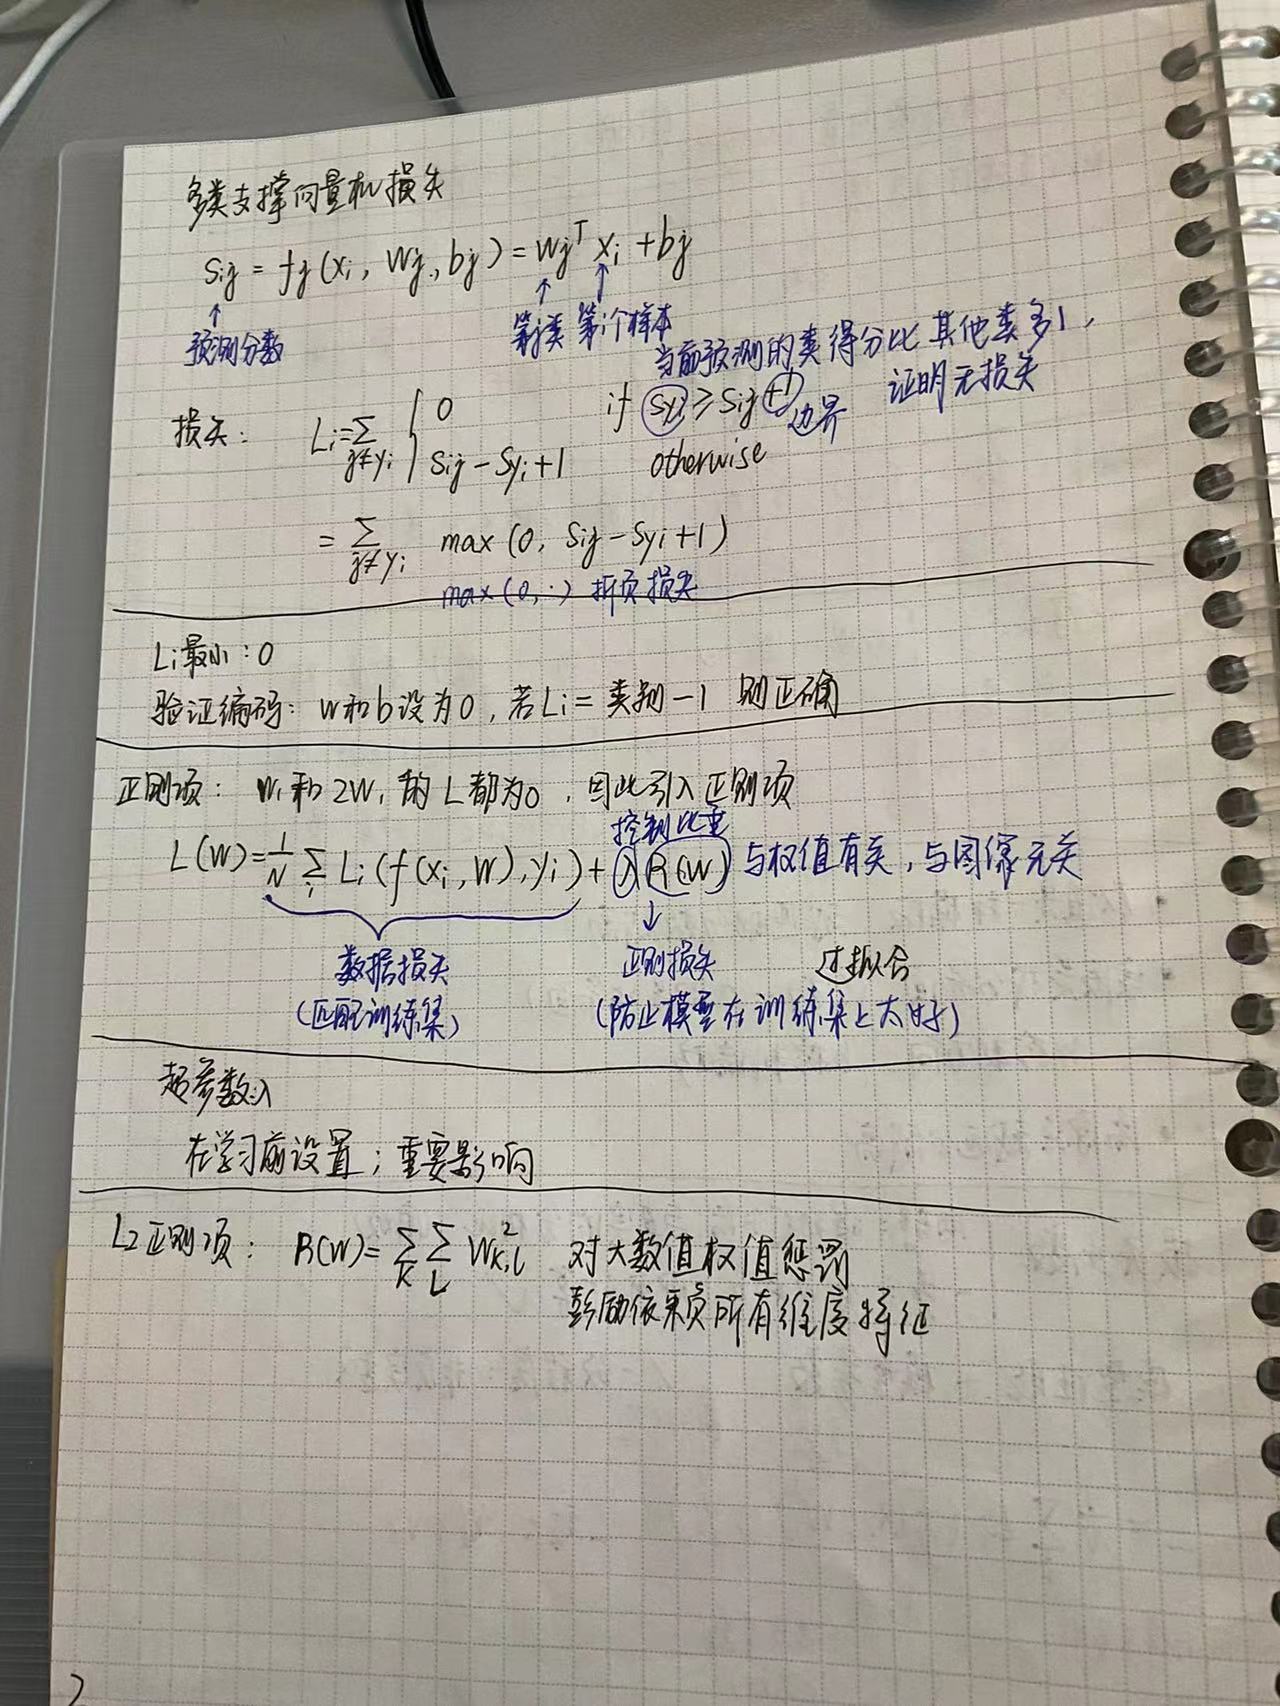 多类支撑向量机损失
Sij = fj(xi, Wj, bj) = WjT xi + bj
↑ ↑ ↑
预测分数 第j类 第i个样本
当前预测的类得分比其他类多1,
证明无损失
损失: Li=∑j≠yi { 0 if Syi ≥ Sij +1 边界
Sij - Syi + 1 otherwise
= ∑j≠yi max (0, Sij - Syi + 1)
max (0, ·) 折页损失
Li最小: 0
验证编码: W和b设为0, 若Li = 类别-1 则正确
正则项: W1和2W1的L都为0, 因此引入正则项
控制比重
L(W) = 1/N ∑i Li (f(xi, W), yi) + λ R(W) 与权值有关, 与图像无关
↓
数据损失 正则损失 过拟合
(匹配训练集) (防止模型在训练集上太好)
超参数:λ
在学习前设置; 重要影响
L2正则项: R(W) = ∑K ∑L Wk,l² 对大数值权值惩罚
鼓励依赖所有维度特征
2